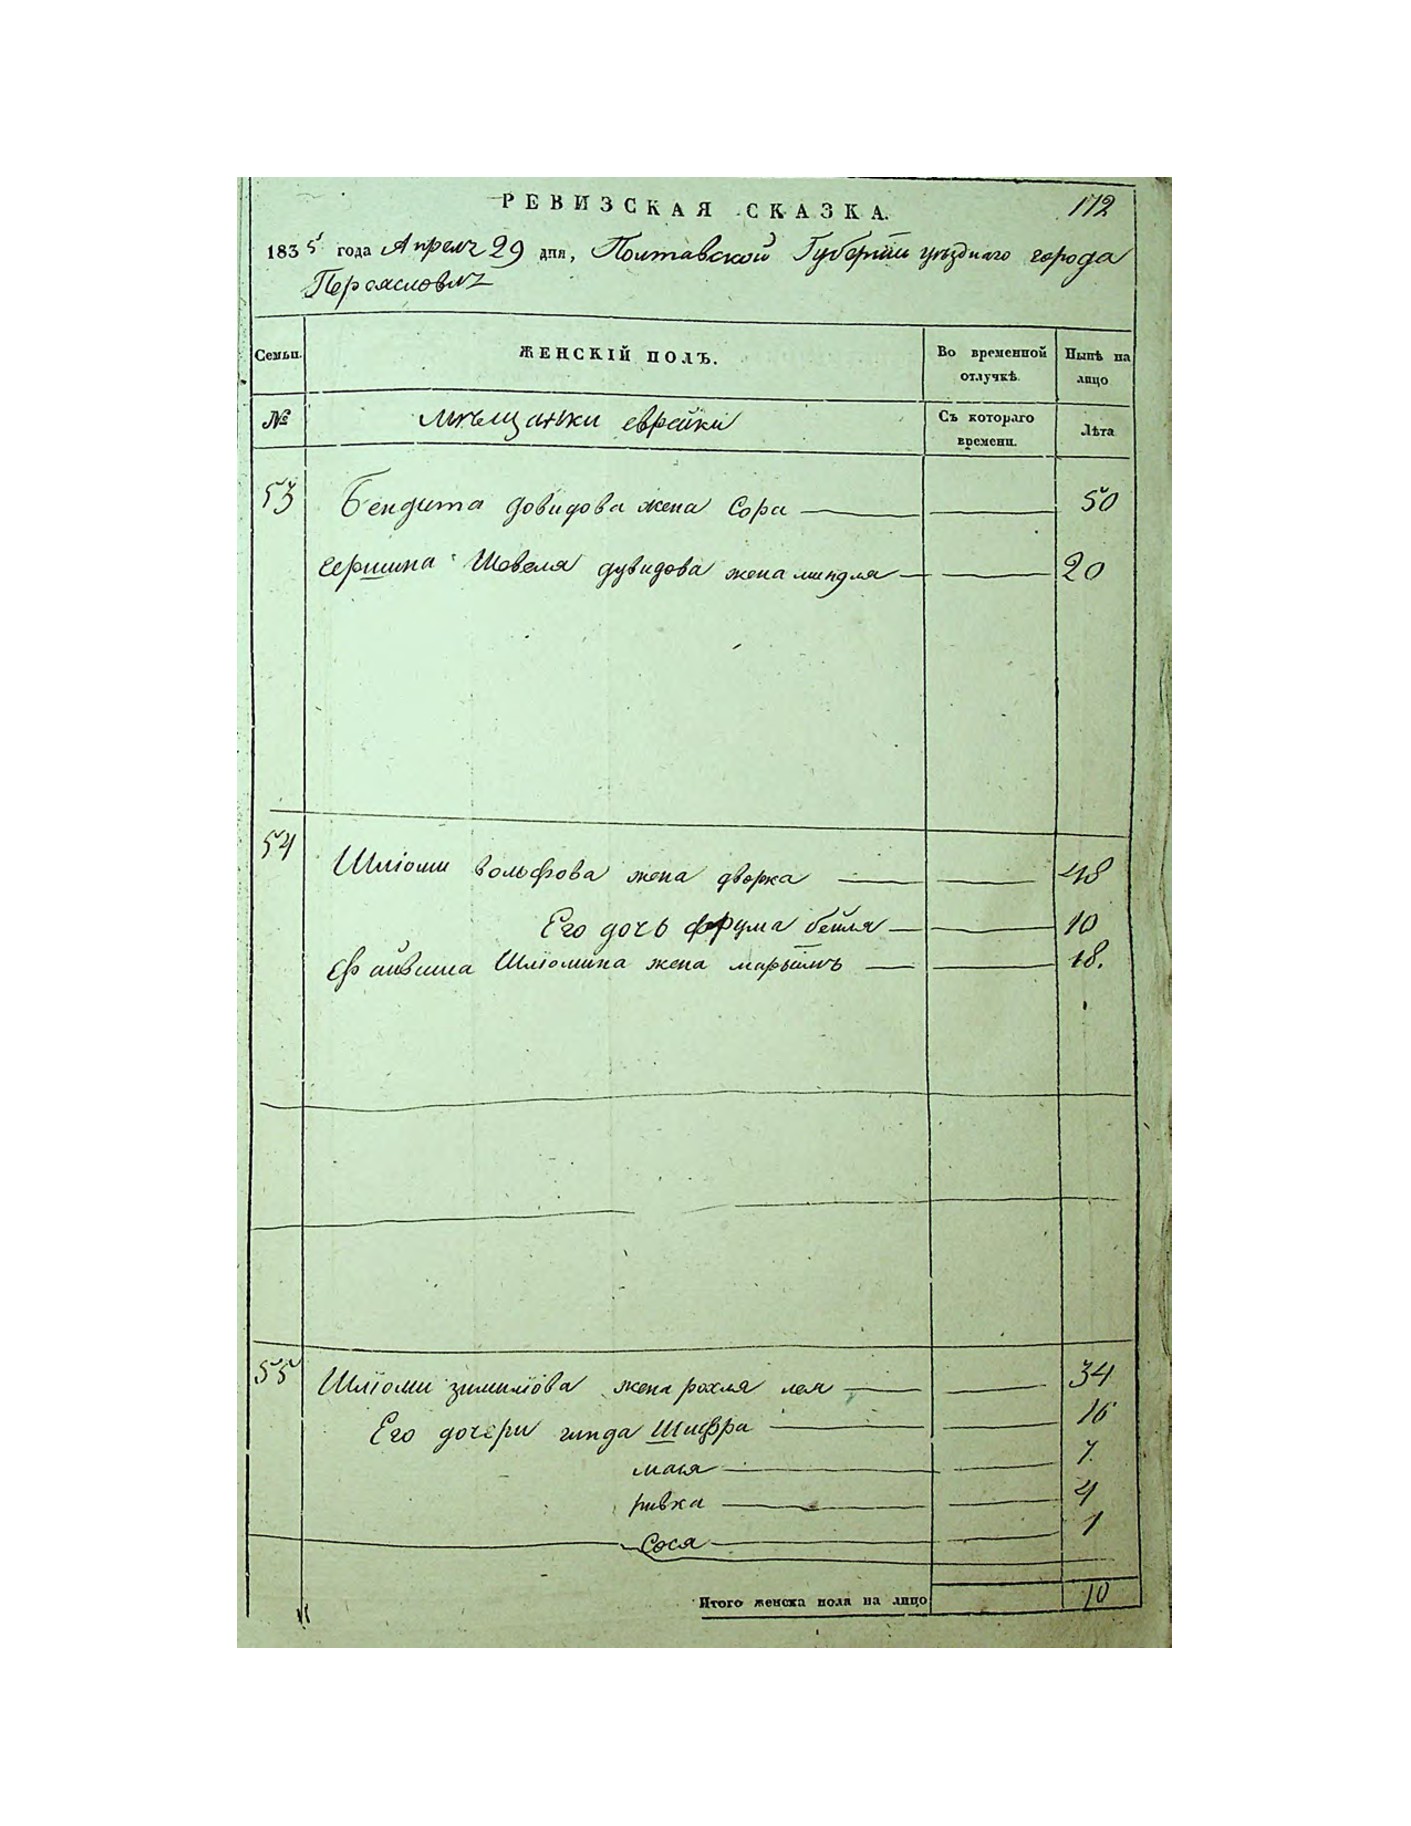 РЕВИЗСКАЯ СКАЗКА.
172
1835 года Апреля 29 дня, Полтавской Губернии уезднаго города
Переяславля
Семьи.
ЖЕНСКІЙ ПОЛЪ.
Во временной отлучкѣ.
Нынѣ на лицо
№
мѣщанки еврейки
Съ котораго времени.
Лѣта
53 Бендита довидова жена Сора 50
Шевеля дувидова жена миндля 20
54 Шліоми вольфова жена дворка 48
Его дочь фрума бейля 10
Шліомина жена марьямъ 18.
55 Шліоми жена рохля лея 34
Его дочери гинда Шифра 16
мася 7.
ривка 4
Сося 1
Итого женска пола на лицо 10